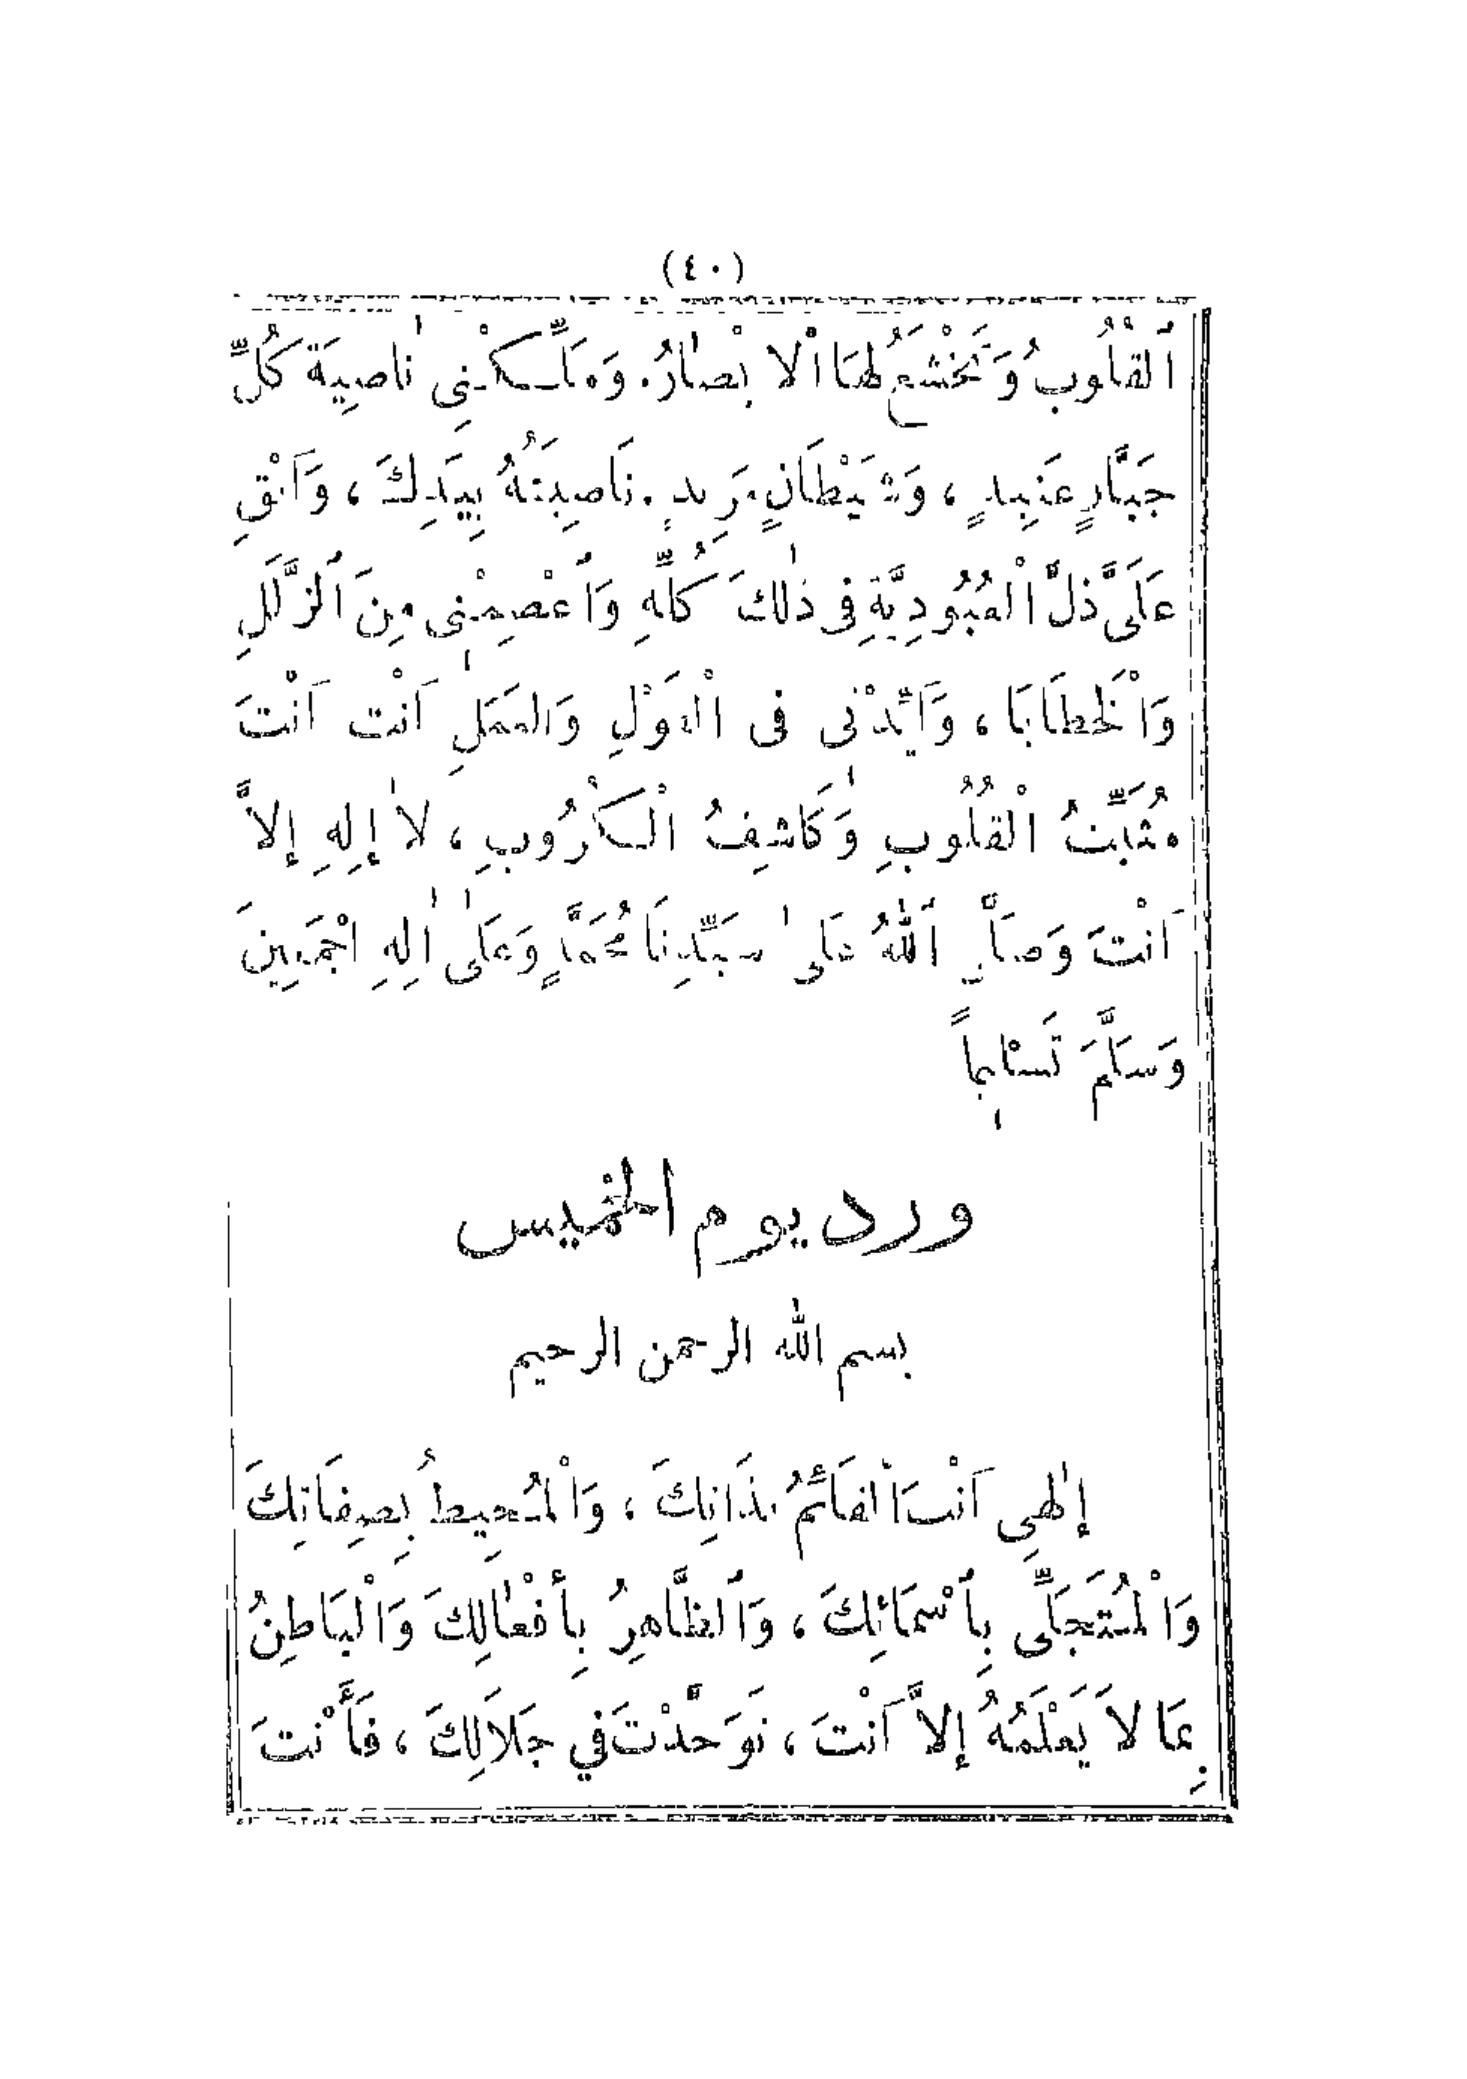 (٤٠)
ٱلْقُلُوبُ وَتَخْشَعُ لَهَا ٱلْاَبْصٰارُ. وَمَلِّكْنِى نٰاصِيَةَ كُلِّ
جَبَّارٍ عَنِيدٍ ، وَشَيْطَانٍ مَرِيدٍ. نَاصِيَتُهُ بِيَدِكَ ، وَاَبْقِ
عَلَىَّ ذُلَّ الْعُبُودِيَّةِ فِى ذٰلِكَ كُلِّهِ وَٱعْصِمْنِى مِنَ ٱلزَّلَلِ
وَالْخَطَايَا ، وَاَيِّدْنِى فِى الْقَوْلِ وَالعَمَلِ اَنْتَ اَنْتَ
مُثَبِّتُ الْقُلُوبِ وَكَاشِفُ الْكُرُوبِ ، لاٰ إِلِهِ إِلاَّ
اَنْتَ وَصَلَّى ٱللّٰهُ عَلَىٰ سَيِّدِنَا مُحَمَّدٍ وَعَلَىٰ اٰلِهِ اجْمَعِينَ
وَسَلَّمَ تَسْلِيماً
ورد يوم الخميس
بسم الله الرحمن الرحيم
إِلٰهِى اَنْتَ ٱلْقَائِمُ بِذَاتِكَ ، وَالْمُحِيطُ بِصِفَاتِكَ
وَالْمُتَجَلِّى بِأَسْمَائِكَ ، وَٱلظَّاهِرُ بِأَفْعٰالِكَ وَالْبَاطِنُ
بِمَا لاَ يَعْلَمُهُ إِلاَّ اَنْتَ ، تَوَحَّدْتَ فِي جَلَالِكَ ، فَأَنْتَ